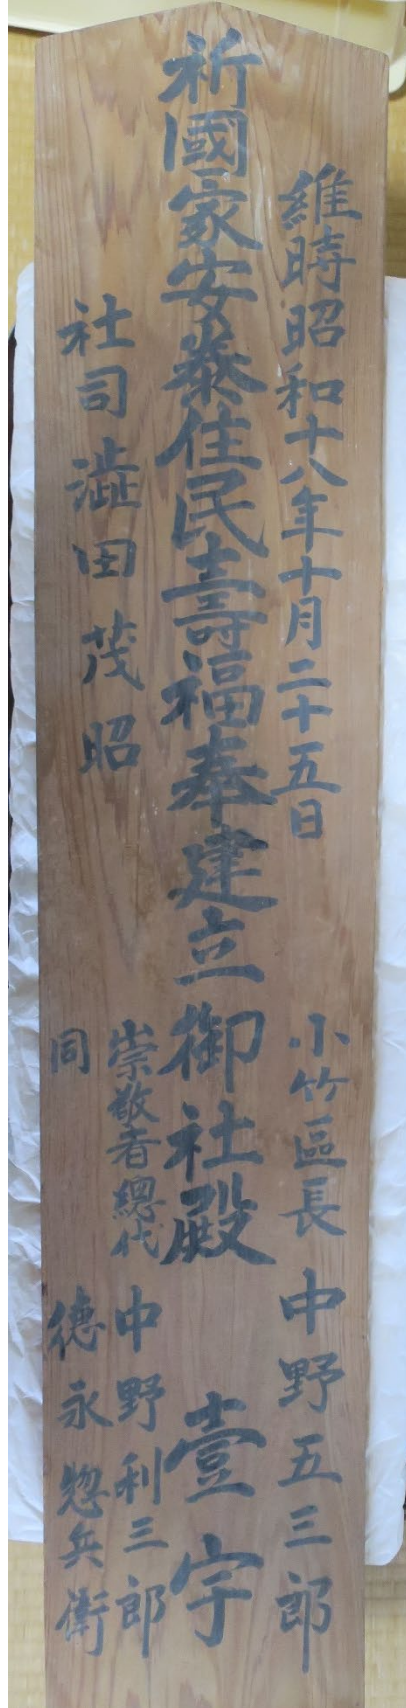 維時昭和十八年十月二十五日
小竹區長 中野五三郎
祈國家安泰住民壽福奉建立御社殿 壹宇
社司 澁田茂昭
崇敬者總代 中野利三郎
同 德永惣兵衛